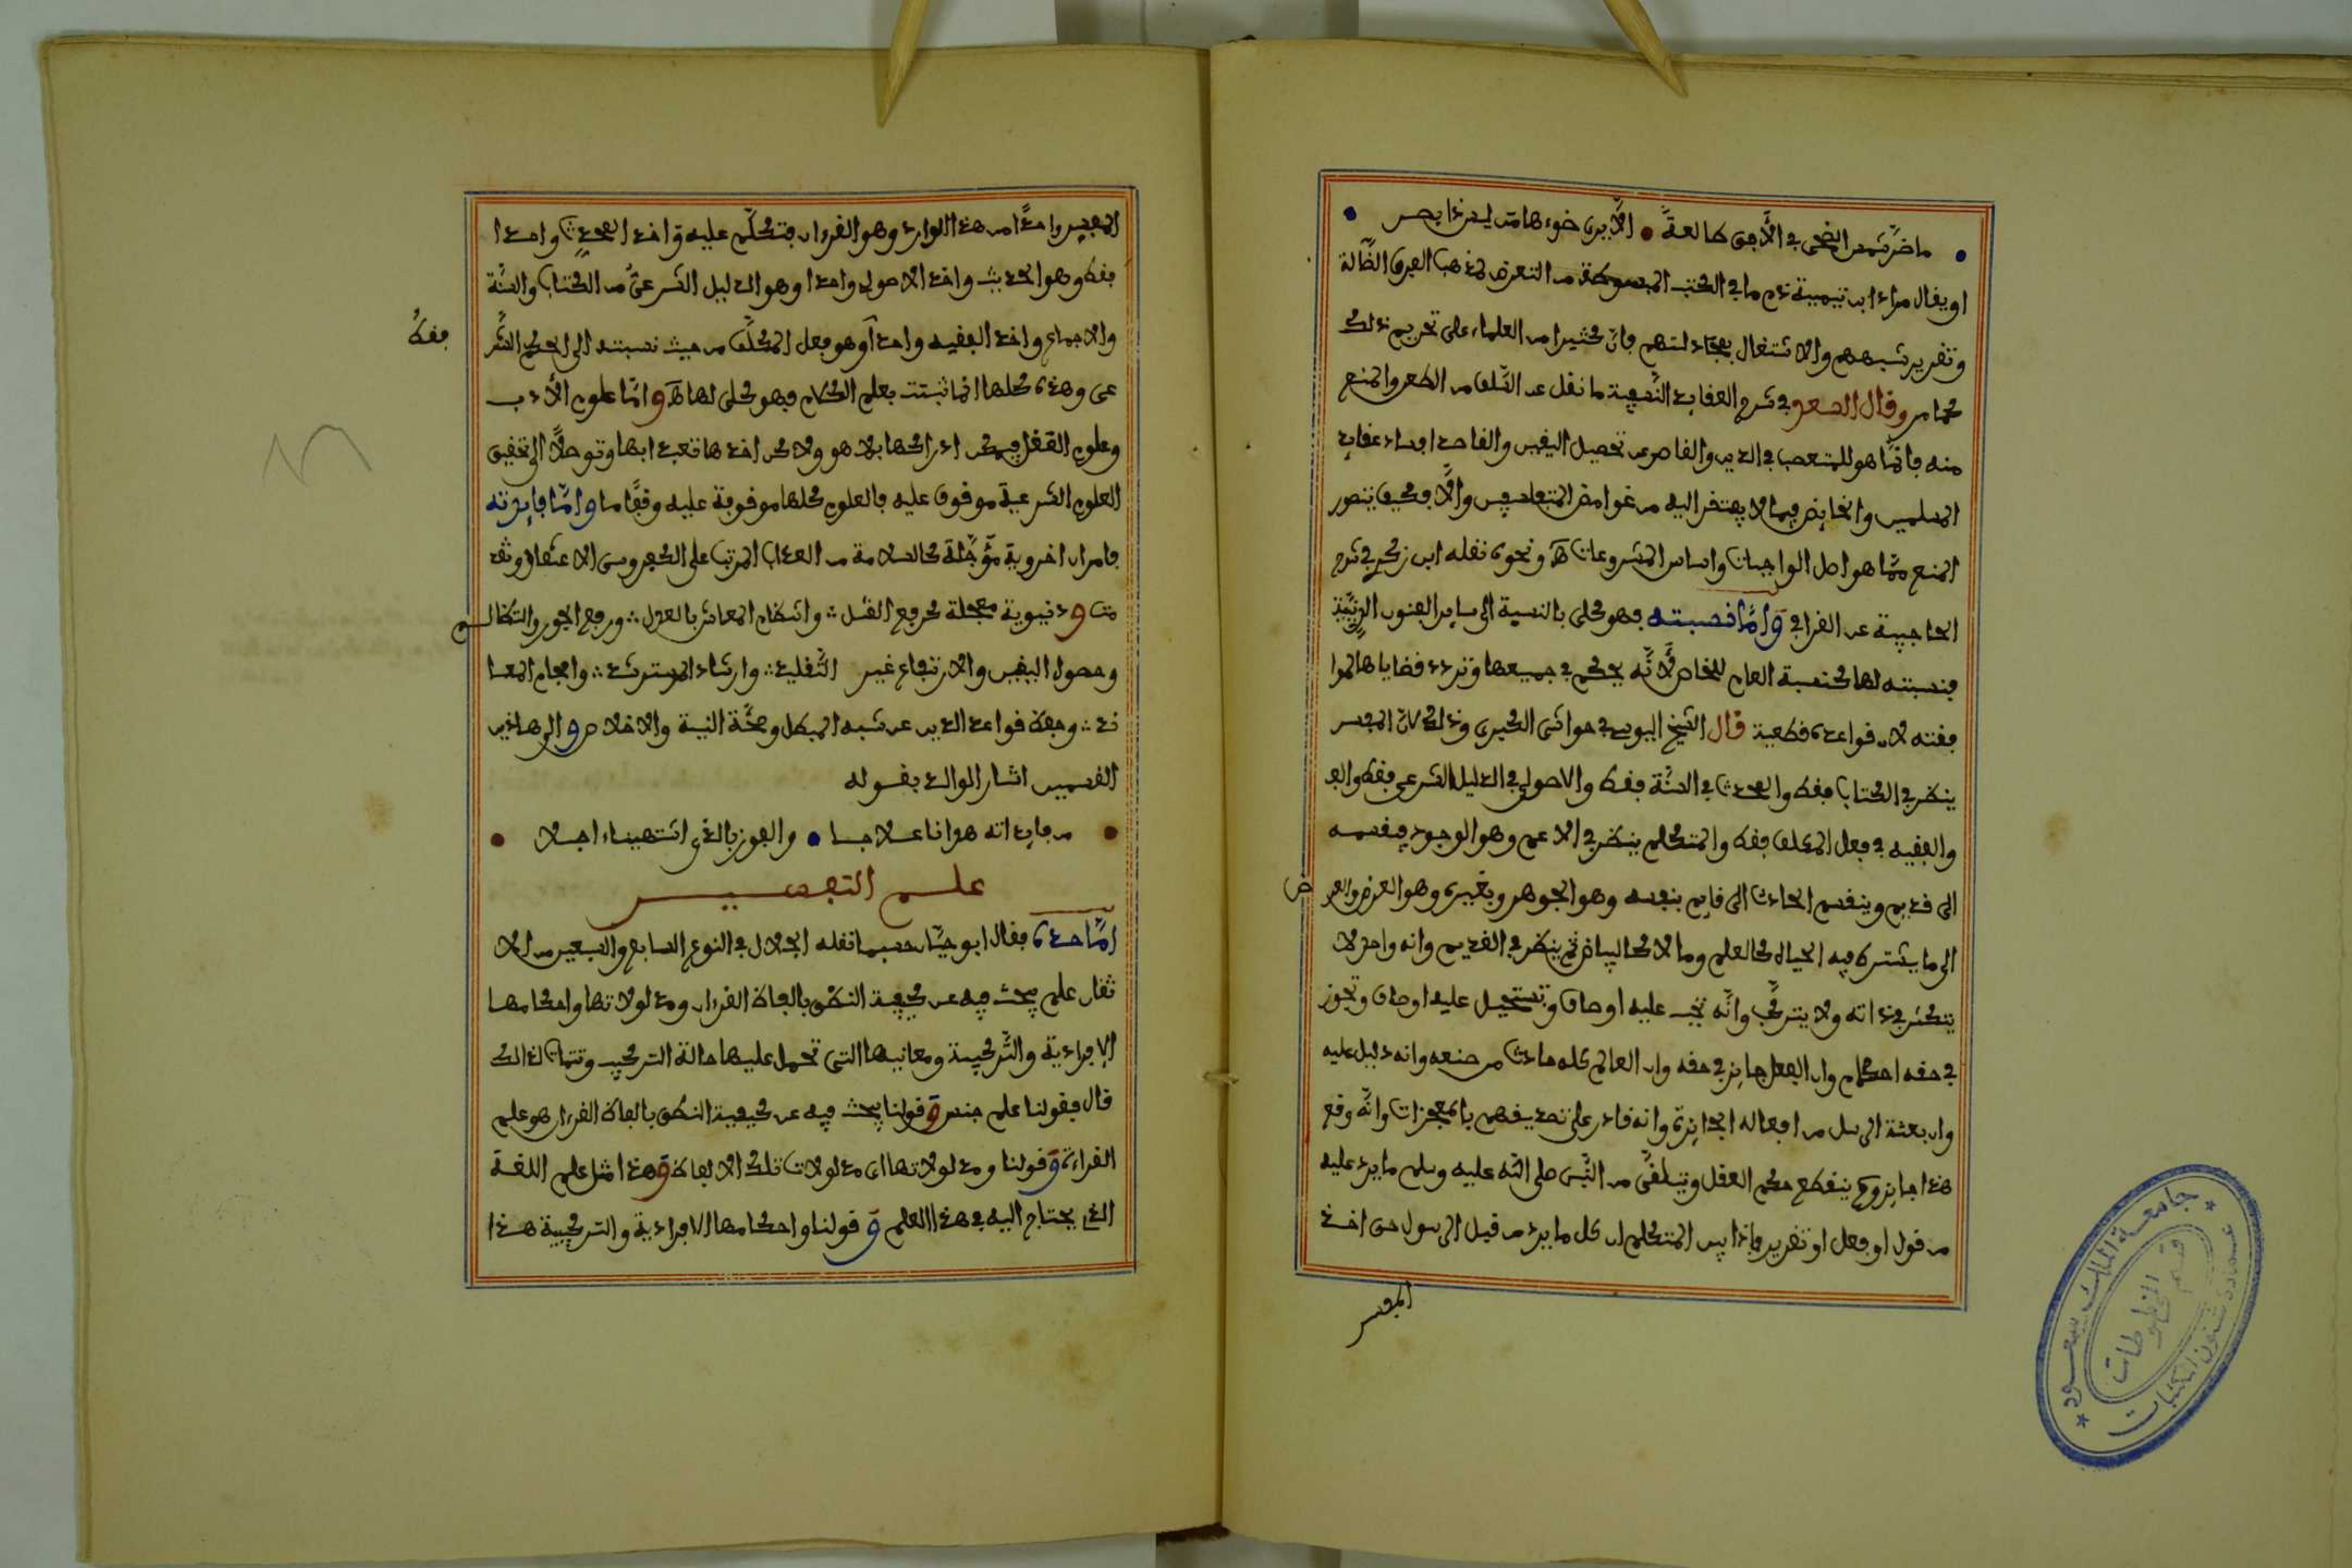 ما ضرّ شمس الضحى في الأفق طالعةً • ألّا يرى ضوءها من ليس ذا بصر
او يقال مراد ابن تيمية ذم ما في الكتب المبسوطة من التعرض لمذهب الفرق الضالة
وتقرير شبههم والاشتغال بمجادلتهم فان كثيرا من العلماء على تحريم ذلك
كما مر وقال السعد في شرح العقائد النسفية ما نقل عن السلف من الطعن والمنع
منه فانما هو للمتعصب في الدين والقاصر عن تحصيل اليقين والقاصد افساد عقايد
المسلمين والخايض فيما لا يفتقر اليه من غوامض المتفلسفين والا فكيف يتصور
المنع مما هو اصل الواجبات واساس المشروعات اهـ ونحوه نقله ابن زكري في شرح
الحاجبية عن القرافي وامّا نسبته فهو كلي بالنسبة الى ساير الفنون الدينية
فنسبته لها كنسبة العام للخاص لأنّه يحكم في جميعها وترد قضاياها لموا
فقته لان قواعده قطعية قال الشيخ اليوسي في حواشي الكبرى وذلك لان المفسر
ينظر في الكتاب فقط والمحدث في السنّة فقط والاصولي في الدليل الشرعي فقط
والفقيه في فعل المكلف فقط والمتكلم ينظر في الاعم وهو الوجود فيقسمه
الى قديم وينقسم الحادث الى قايم بنفسه وهو الجوهر وبغيره وهو العرض والعرض
الى ما يشترط فيه الحياة كالعلم وما لا كالبياض ثم ينظر في القديم وانه واحد لا
يتكثر في ذاته ولا يتركّب وانّه تجب عليه اوصاف وتستحيل عليه اوصاف وتجوز
في حقه احكام وان الفعل جايز في حقه وان العالم كله حادث من صنعه وانه دليل عليه
وان بعثة الرسل من افعاله الجايزة وانه قادر على تصديقهم بالمعجزات وانّه وقع
هذا الجايز وح ينقطع حكم العقل ويتلقى من النّبي صلى الله عليه وسلم ما يرد عليه
من قول او فعل او تقرير فاذا بين المتكلم ان كل ما يرد من قبل الرسول حق اخذ
المفسر
المفسر واحدًا من هذا الوارد وهو القرءان فتكلّم عليه واخذ المحدث واحدا
فقط وهو الحديث واخذ الاصولي واحدا وهو الدليل الشرعيّ من الكتاب والسنّة
فقط
والاجماع واخذ الفقيه واحدا وهو فعل المكلّف من حيث نسبته الى الحكم الشر
عي وهذه كلها انما ثبتت بعلم الكلام فهو كلي لها اهـ وامّا علوم الأدب
وعلوم العقل فيمكن ادراكها بلا هو ولا كن اخذها تعبدا بها وتوصلًا الى تحقيق
العلوم الشرعية موقوف عليه فالعلوم كلها موقوفة عليه وقفًا ما وامّا فايدته
فامران اخروية مؤجّلة كالسلامة من العذاب المرتب على الكفر وسوء الاعتقاد وثمر
ت ودنيوية معجلة كرفع القتل : وانتظام المعاش بالعدل : ورفع الجور والتظالم
وحصول اليقين والارتفاع عن التّقليد : وارشاد المسترشد : وافحام المعا
ند : وحفظ قواعد الدين عن شبه المبطل وصحّة النية والاخلاص والى هاذين
القسمين اشار الوالد بقوله
• من فايداته هوانا عـلاجا • والفوز بالذي اشتهيناه اجلا •
علم التفسير
امّا حده فقال ابو حيّان حسبما نقله الجلال في النوع السابع والسبعين من الا
تقان علم يبحث فيه عن كيفية النطق بالفاظ القرءان ومدلولاتها واحكامها
الافرادية والتّركيبية ومعانيها التي تحمل عليها حالة التركيب وتتمات لذلك
قال فقولنا علم جنس وقولنا يبحث فيه عن كيفية النطق بالفاظ القرءان هو علم
القراءة وقولنا ومدلولاتها اي مدلولات تلك الالفاظ وهذا مثل علم اللغة
الذي يحتاج اليه في هذا العلم وقولنا واحكامها الافرادية والتركيبية هذا
جامعة الملك سعود
عمادة شئون المكتبات
قسم المخطوطات